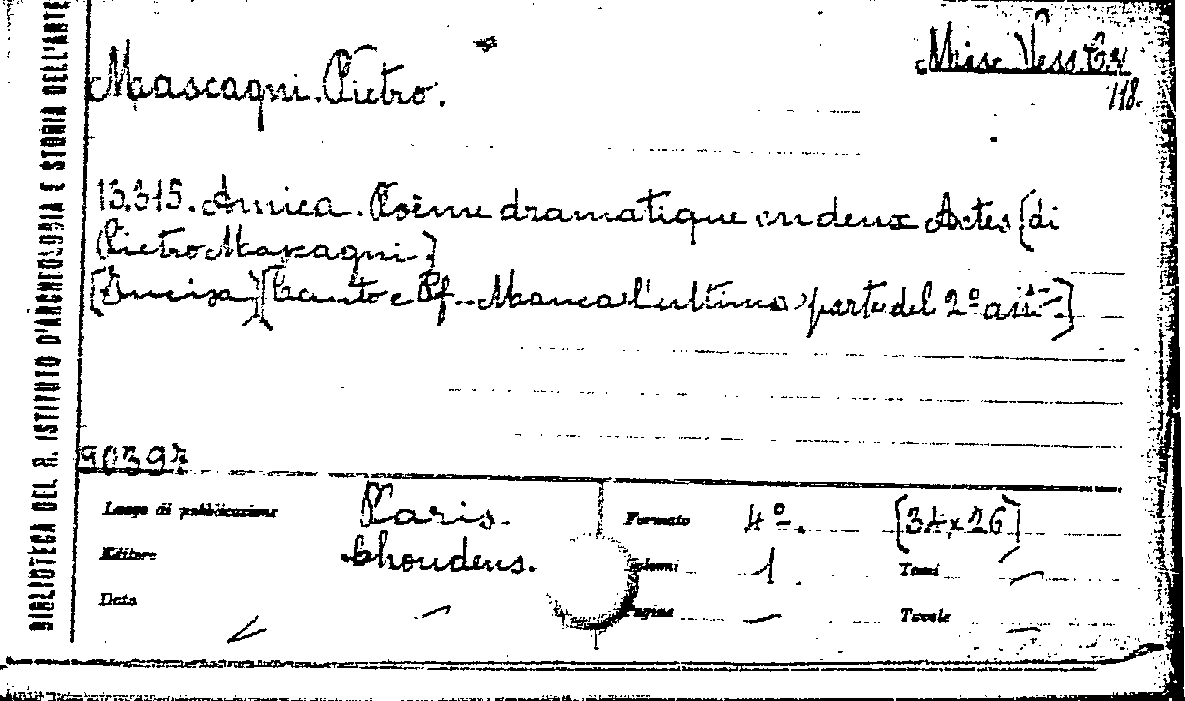 BIBLIOTECA DEL R. ISTITUTO D'ARCHEOLOGIA E STORIA DELL'ARTE
Mascagni. Pietro.
Misc. Vess.
118.
13.315. Amica. Poème dramatique en deux Actes [di
Pietro Mascagni]
[Incisa] [Canto e Pf. - Manca l'ultima parte del 2º atto]
90397
Luogo di pubblicazione Paris. Formato 4º. [34 x 26]
Editore Choudens. Volumi 1 Tomi —
Data — Pagine — Tavole —